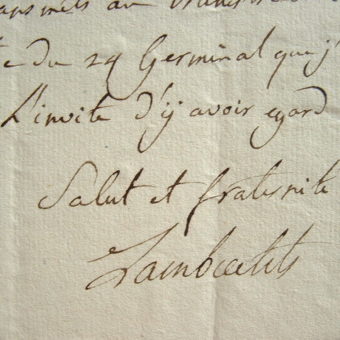 transmets au ministre
du 29 Germinal que j'
L'invite d'y avoir egard
Salut et fraternite
Lambrechts